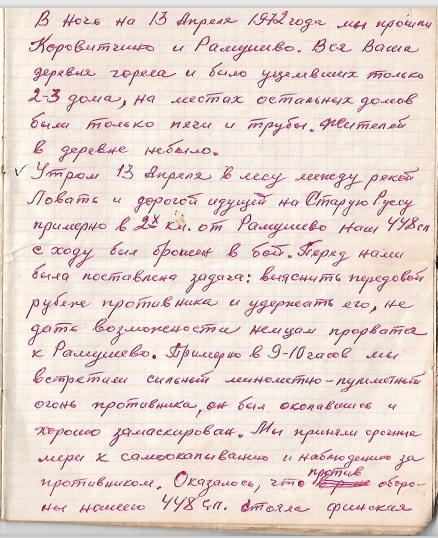 В ночь на 13 Апреля 1942 года мы прошли
Коровитчино и Рамушево. Вся Ваша
деревня горела и было уцелевших только
2-3 дома, на местах остальных домов
были только печи и трубы. Жителей
в деревне небыло.
Утром 13 Апреля в лесу между рекой
Ловать и дорогой идущей на Старую Руссу
примерно в 2х км. от Рамушево наш 448 сп
с ходу был брошен в бой. Перед нами
была поставлена задача: выяснить передовой
рубеж противника и удержать его, не
дать возможности немцам прорватся
к Рамушево. Примерно в 9-10 часов мы
встретили сильный минометно-пулеметный
огонь противника, он был окопавшись и
хорошо замаскирован. Мы приняли срочные
меры к самоокапыванию и наблюдению за
противником. Оказалось, что против оборо-
ны нашего 448 сп. стояла финская